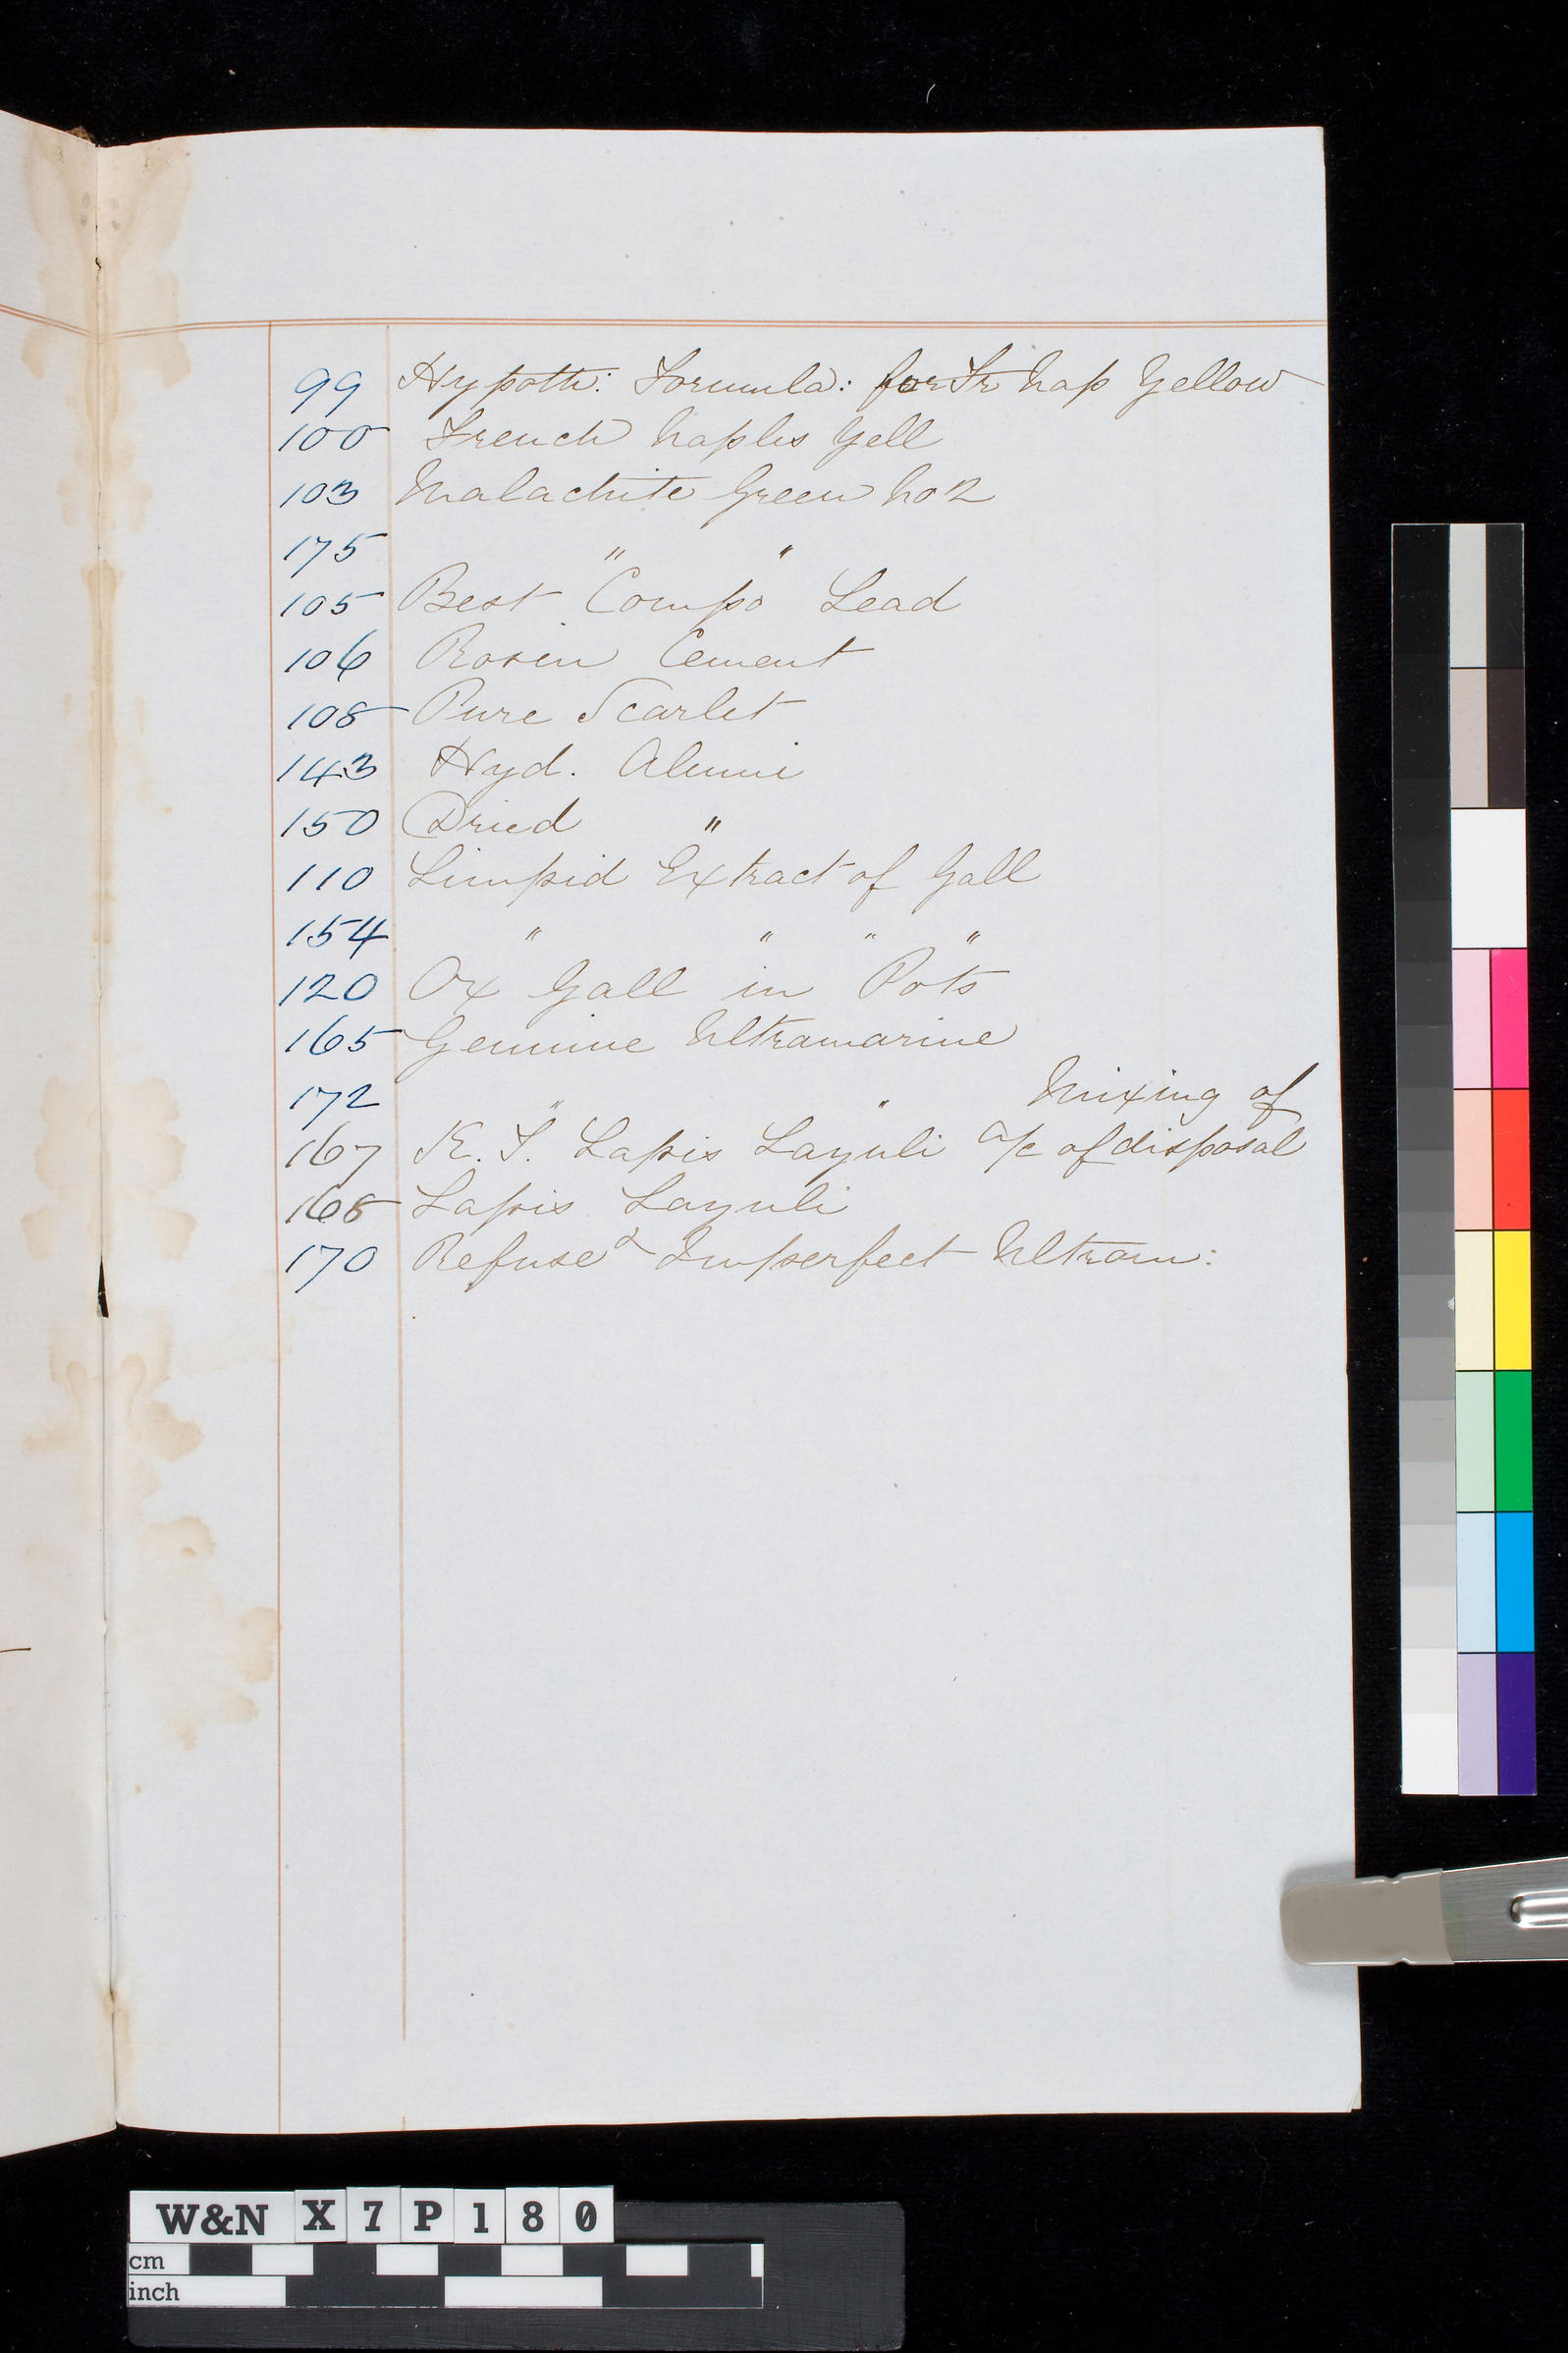 99 Hypoth: Formula: for Fr Nap Yellow
100 French Naples Yell
103 Malachite Green No 2
175 " "
105 Best "Compo" Lead
106 Rosin Cement
108 Pure Scarlet
143 Hyd. Alumi
150 Dried "
110 Limpid Extract of Gall
154 " " " "
120 Ox Gall in Pots
165 Genuine Ultramarine
172 " " Mixing of
167 R. S. Lapis Lazuli a/c of disposal
168 Lapis Lazuli
170 Refuse & Imperfect Ultram:
W&N X7P180
cm
inch